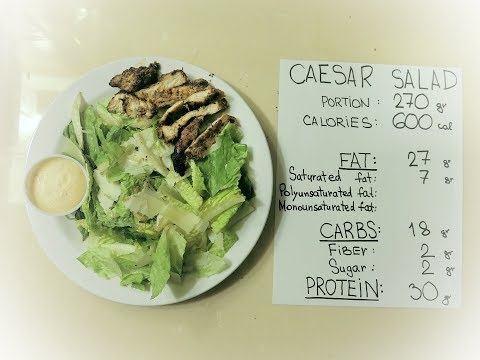 CAESAR SALAD
PORTION : 270 gr
CALORIES: 600 cal
FAT: 27 gr
Saturated fat: 7 gr
Polyunsaturated fat:
Monounsaturated fat:
CARBS: 18 gr
FiBER: 2 gr
Sugar: 2 gr
PROTEIN: 30 gr